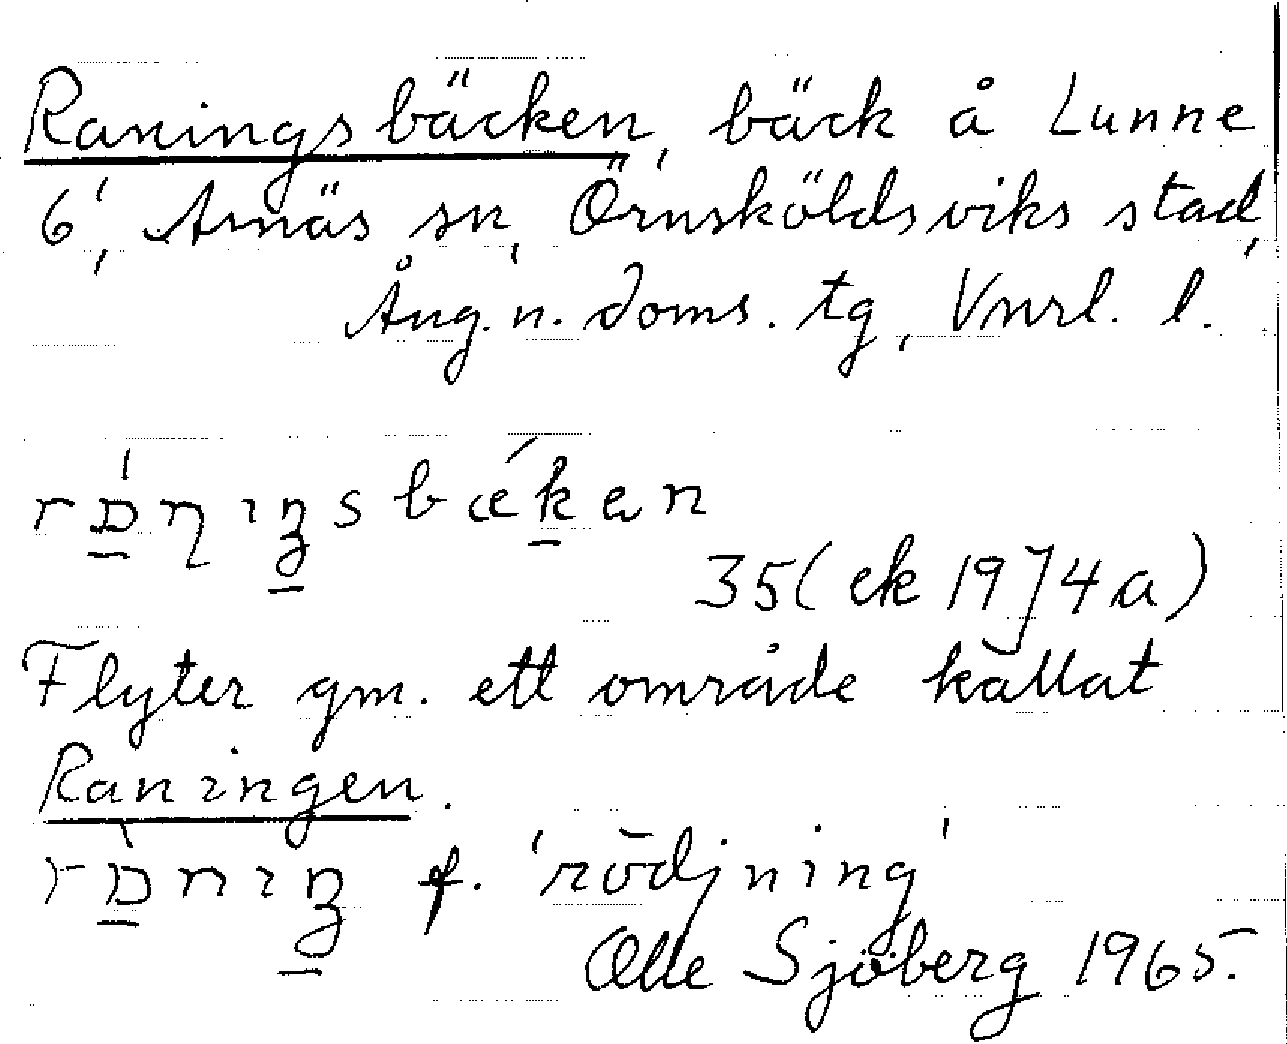 Raningsbäcken, bäck å Lunne
6', Arnäs sn, Örnsköldsviks stad,
Ång. n. doms. tg, Vnrl. l.
35 (ek 1974a)
Flyter gm. ett område kallat
Raningen.
f. 'rödjning'
Olle Sjöberg 1965.